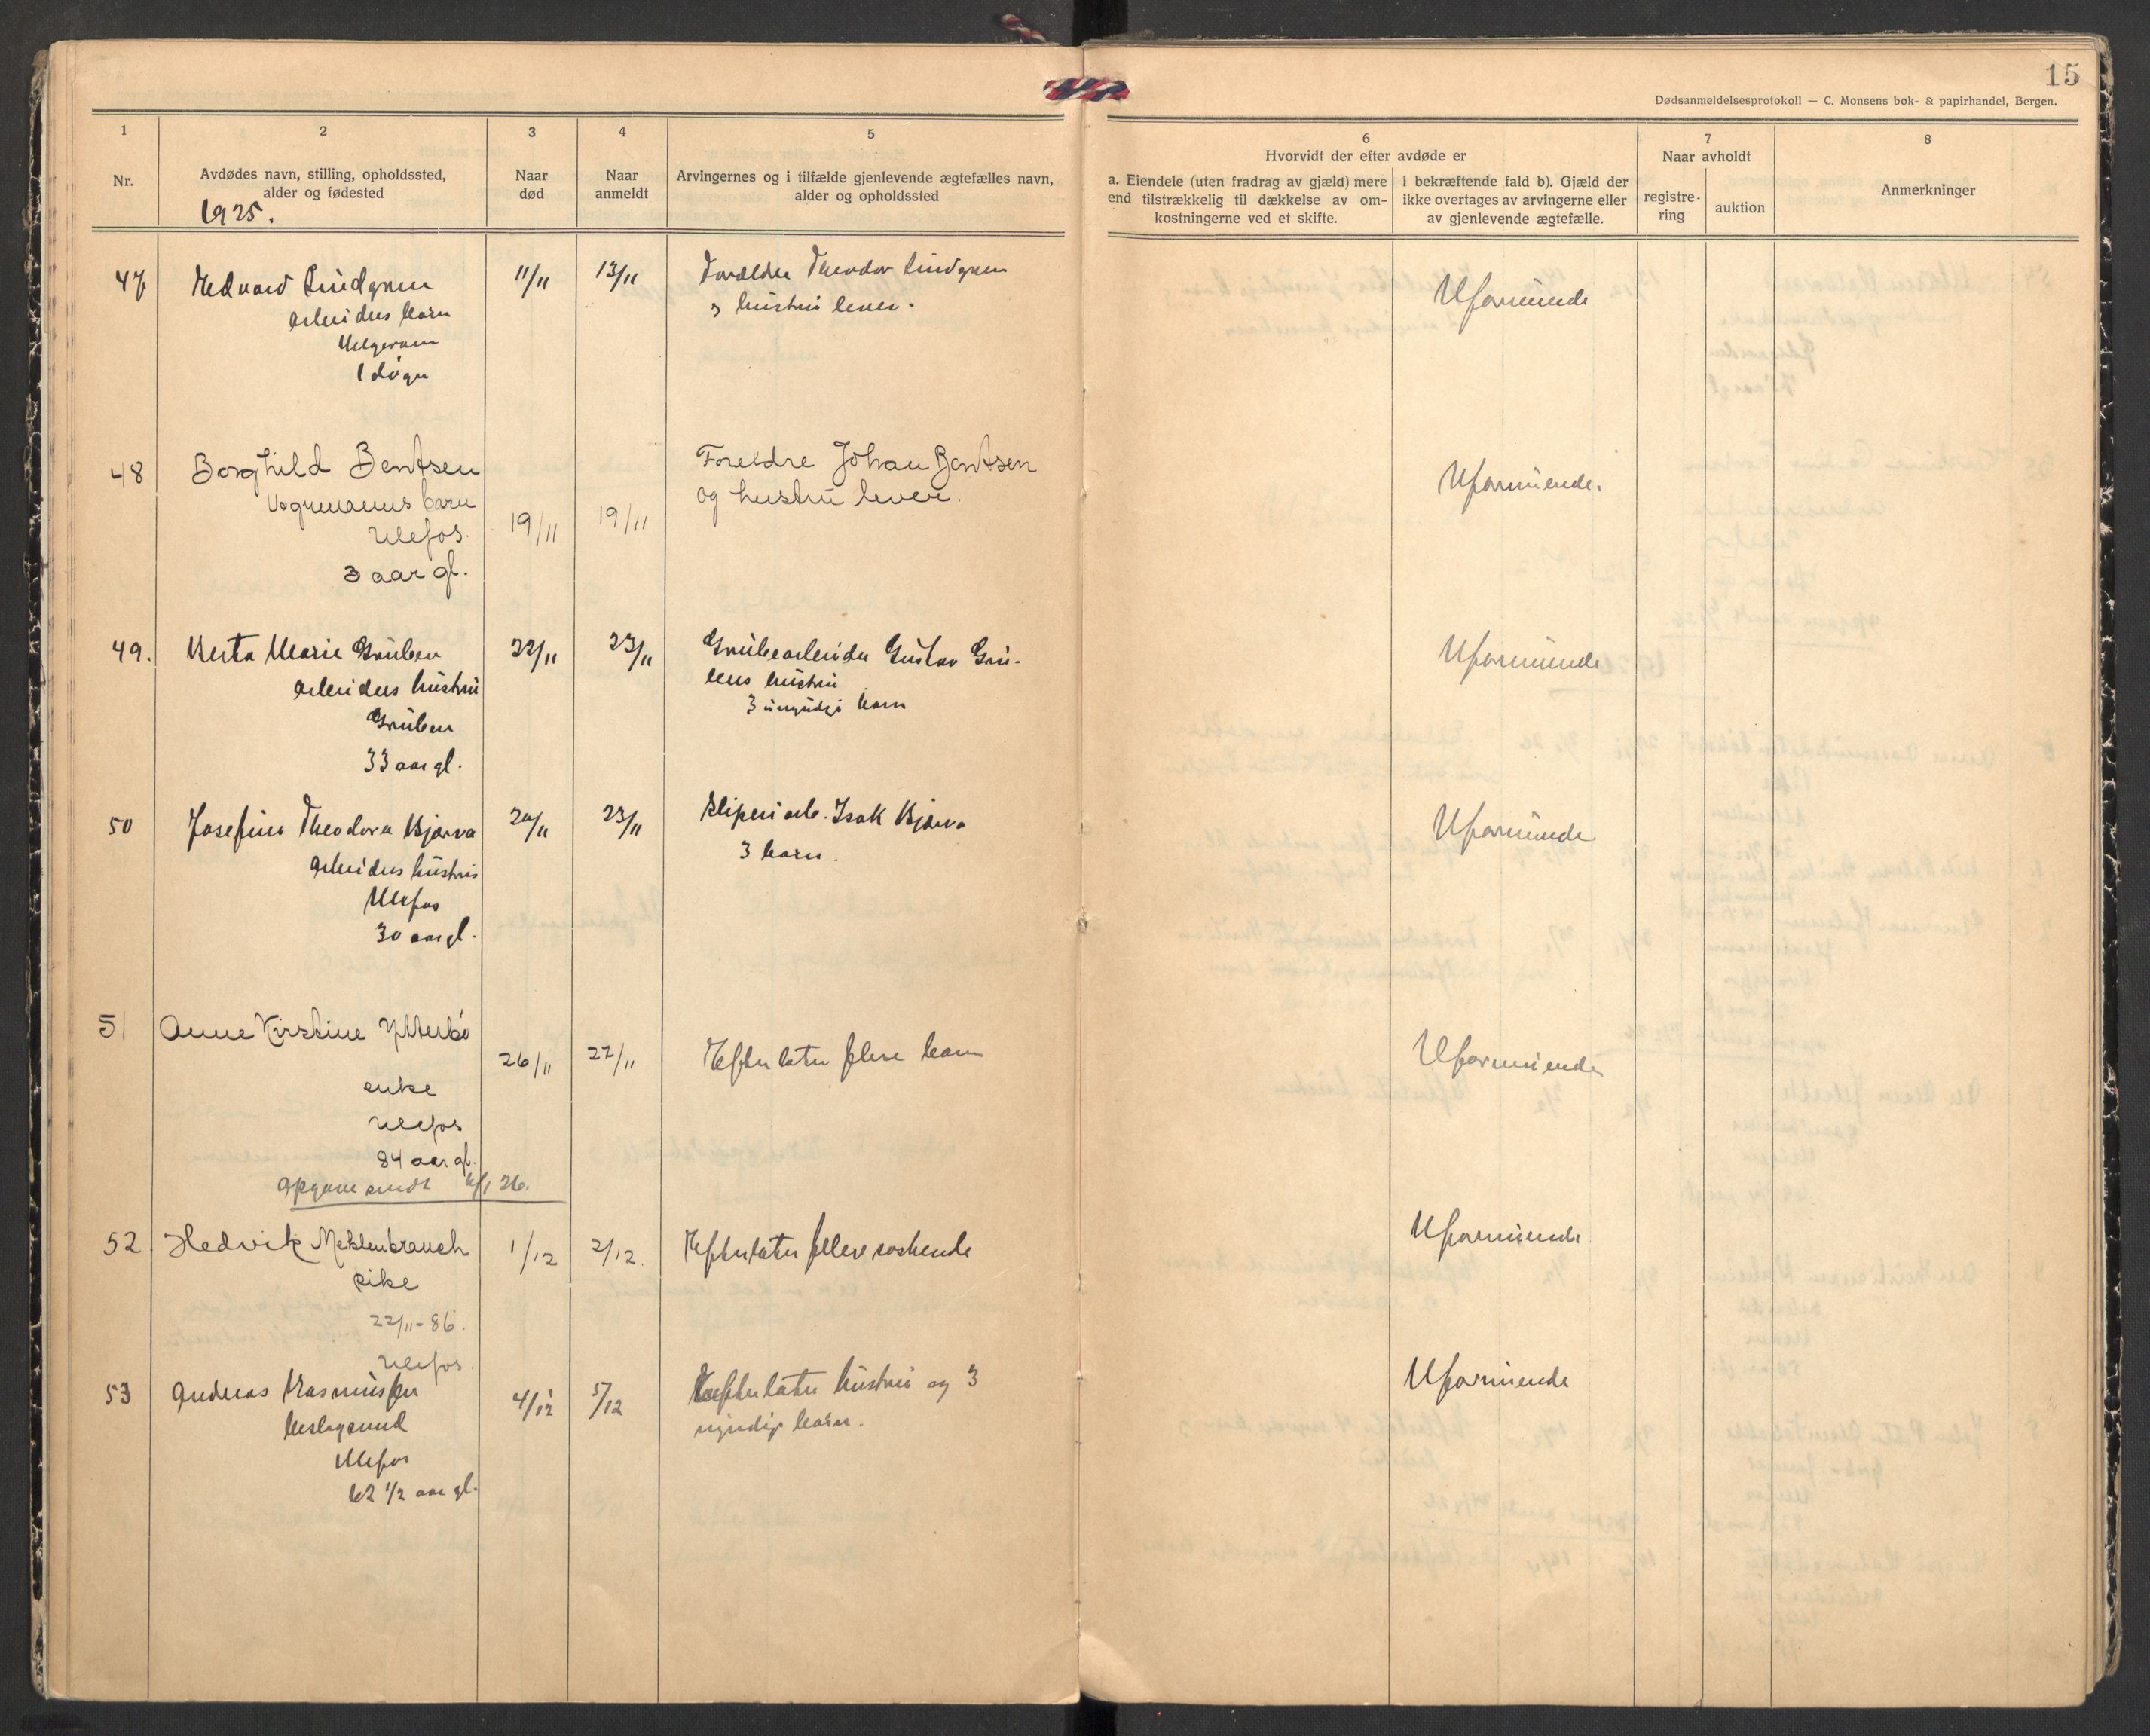 15
Dødsanmeldelsesprotokoll — C. Monsens bok- & papirhandel, Bergen.
1
2
3
4
5
6
7
8
Nr.
Avdødes navn, stilling, opholdssted,
alder og fødested
Naar
død
Naar
anmeldt
Arvingernes og i tilfælde gjenlevende ægtefælles navn,
alder og opholdssted
Hvorvidt der efter avdøde er
a. Eiendele (uten fradrag av gjæld) mere
end tilstrækkelig til dækkelse av om-
kostningerne ved et skifte.
I bekræftende fald b). Gjæld der
ikke overtages av arvingerne eller
av gjenlevende ægtefælle.
Naar avholdt
registre-
ring
auktion
Anmerkninger
1925.
47
Edvard Lindgren
arbeiders barn
1 døgn
11/11
13/11
Forældre Theodor Lindgren
og hustru lever.
Uformuende
48
Borghild Bentsen
Vognmanns barn
Ulefos.
3 aar gl.
19/11
19/11
Foreldre Johan Bentsen
og hustru lever.
Uformuende.
49.
Berta Marie Gruben
arbeiders hustru
Gruben
33 aar gl.
22/11
23/11
Grubearbeider Gustav Gru-
bens hustru
3 umyndige barn
Uformuende
50
Josefine Theodora Bjerva
arbeiders hustru
Ulefos
30 aar gl.
20/11
23/11
Sliperiarb. Isak Bjerva
3 barn.
Uformuende
51
Anne Kirstine Ytterbø
enke
Ulefos
84 aar gl.
Opgave sendt 26.
26/11
27/11
Efterlater flere barn
Uformuende
52
Hedvik Meklenbrauch
pike
22/11-86.
Ulefos.
1/12
2/12.
Efterlater flere søskende
Uformuende
53
Andreas Rasmussen
Ulefos
62 1/2 aar gl.
4/12
5/12
Efterlater hustru og 3
myndige barn.
Uformuende